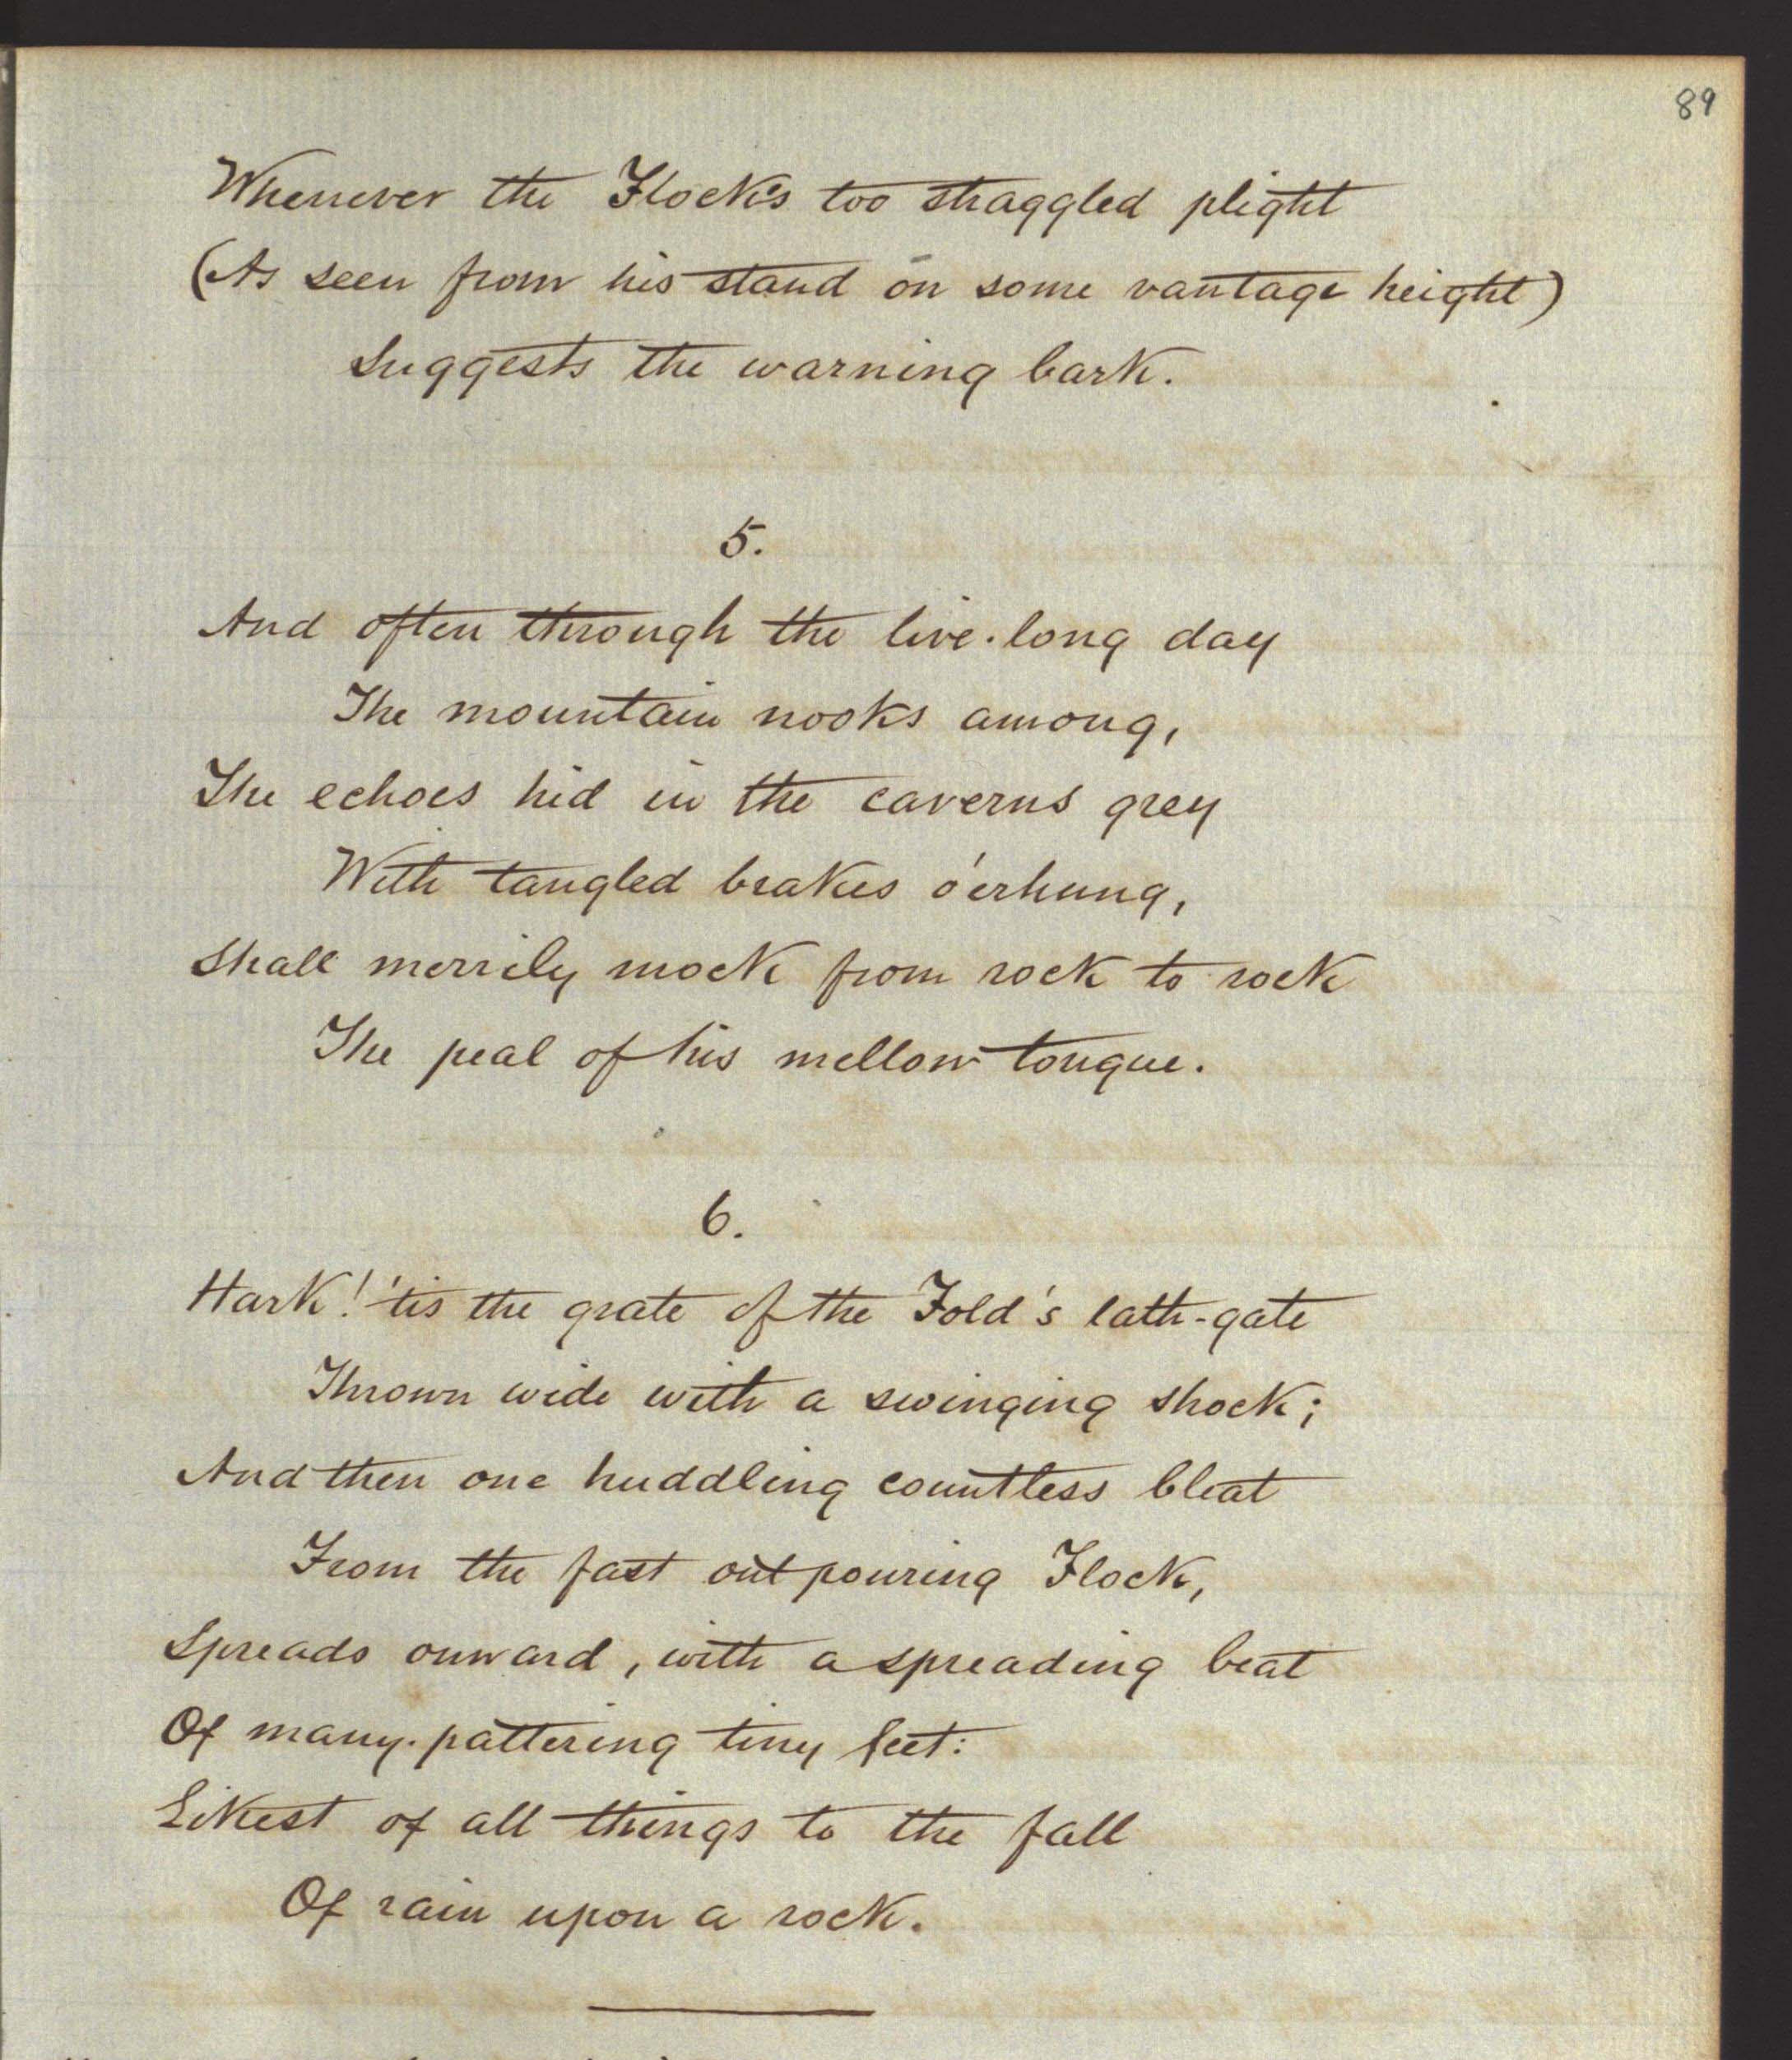 89
Whenever the Flock's too straggled plight
(As seen from his stand on some vantage height)
Suggests the warning bark.
5.
And often through the live-long day
The mountain nooks among,
The echoes hid in the caverns grey
With tangled brakes o'erhung,
Shall merrily mock from rock to rock
The peal of his mellow tongue.
6.
Hark! 'tis the grate of the Fold's lath-gate
Thrown wide with a swinging shock;
And then one huddling countless bleat
From the fast outpouring Flock,
Spreads onward, with a spreading beat
Of many-pattering tiny feet:
Likest of all things to the fall
Of rain upon a rock.